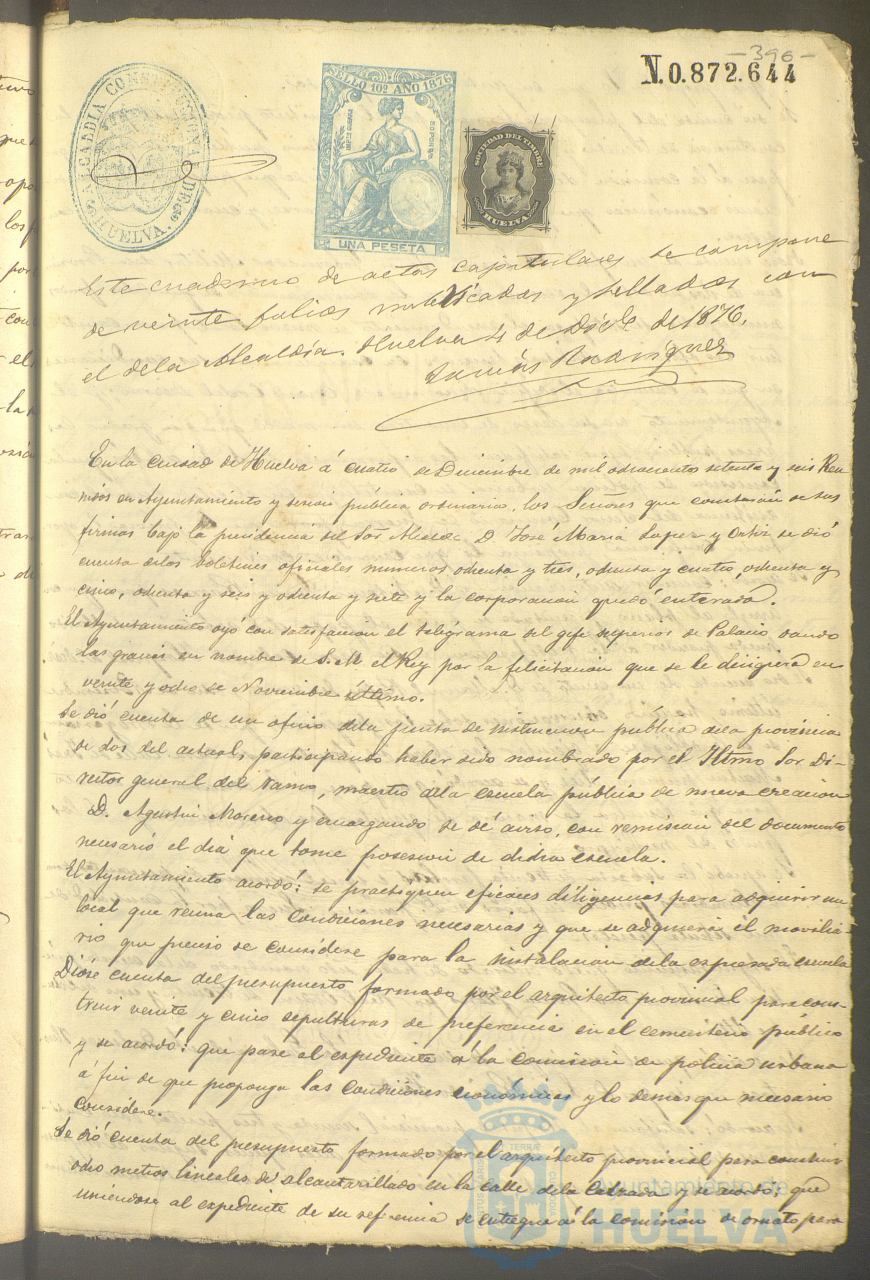 -396-
N.0.872.644
ALCALDIA CONSTITUCIONAL DE HUELVA
SELLO 10º AÑO 1876
UNA PESETA
SOCIEDAD DEL TIMBRE
HUELVA
Este cuaderno de actas capitulares se compone
de veinte folios rubricados y sellados con
el dela Alcaldía. Huelva 4 de Dicbe de 1876.
Rodriguez
En la ciudad de Huelva á cuatro de Diciembre de mil ochocientos setenta y seis Reu-
nidos en Ayuntamiento y sesion pública ordinaria, los Señores que constarán de sus
firmas bajo la presidencia del Sor Alcalde D. José Maria Lopez y Ortiz se dió
cuenta delos boletines oficiales numeros ochenta y tres, ochenta y cuatro, ochenta y
cinco, ochenta y seis y ochenta y siete y la corporacion quedó enterada.
El Ayuntamiento oyó con satisfacion el telégrama del gefe superior de Palacio dando
las gracias en nombre de S. M. el Rey por la felicitacion que se le dirigiera en
veinte y ocho de Noviembre último.
Se dió cuenta de un oficio dela junta de instruccion pública dela provincia
de dos del actual, participando haber sido nombrado por el Iltmo Sor Di-
rector general del ramo, maestro dela escuela pública de nueva creacion
D. Agustin Moreno y encargando se dé aviso, con remision del documento
necesario el dia que tome posesion de dicha escuela.
El Ayuntamiento acordó: se practiquen eficaces diligencias para adquirir un
local que reuna las condiciones necesarias y que se adquiera el movilia-
rio que preciso se considere para la instalacion dela espresada escuela
Dióse cuenta del presupuesto formado por el arquitecto provincial para cons-
truir veinte y cinco sepulturas de preferencia en el cementerio público
y se acordó: que pase el espediente á la comision de policia urbana
á fin de que proponga las condiciones económicas y lo demas que necesario
considere.
Se dió cuenta del presupuesto formado por el arquitecto provincial para construir
ocho metros lineales de alcantarillado en la calle dela Calzada y se acordó: que
uniendose al espediente de su referencia se entregue á la comision de ornato para
Ayuntamiento de
HUELVA